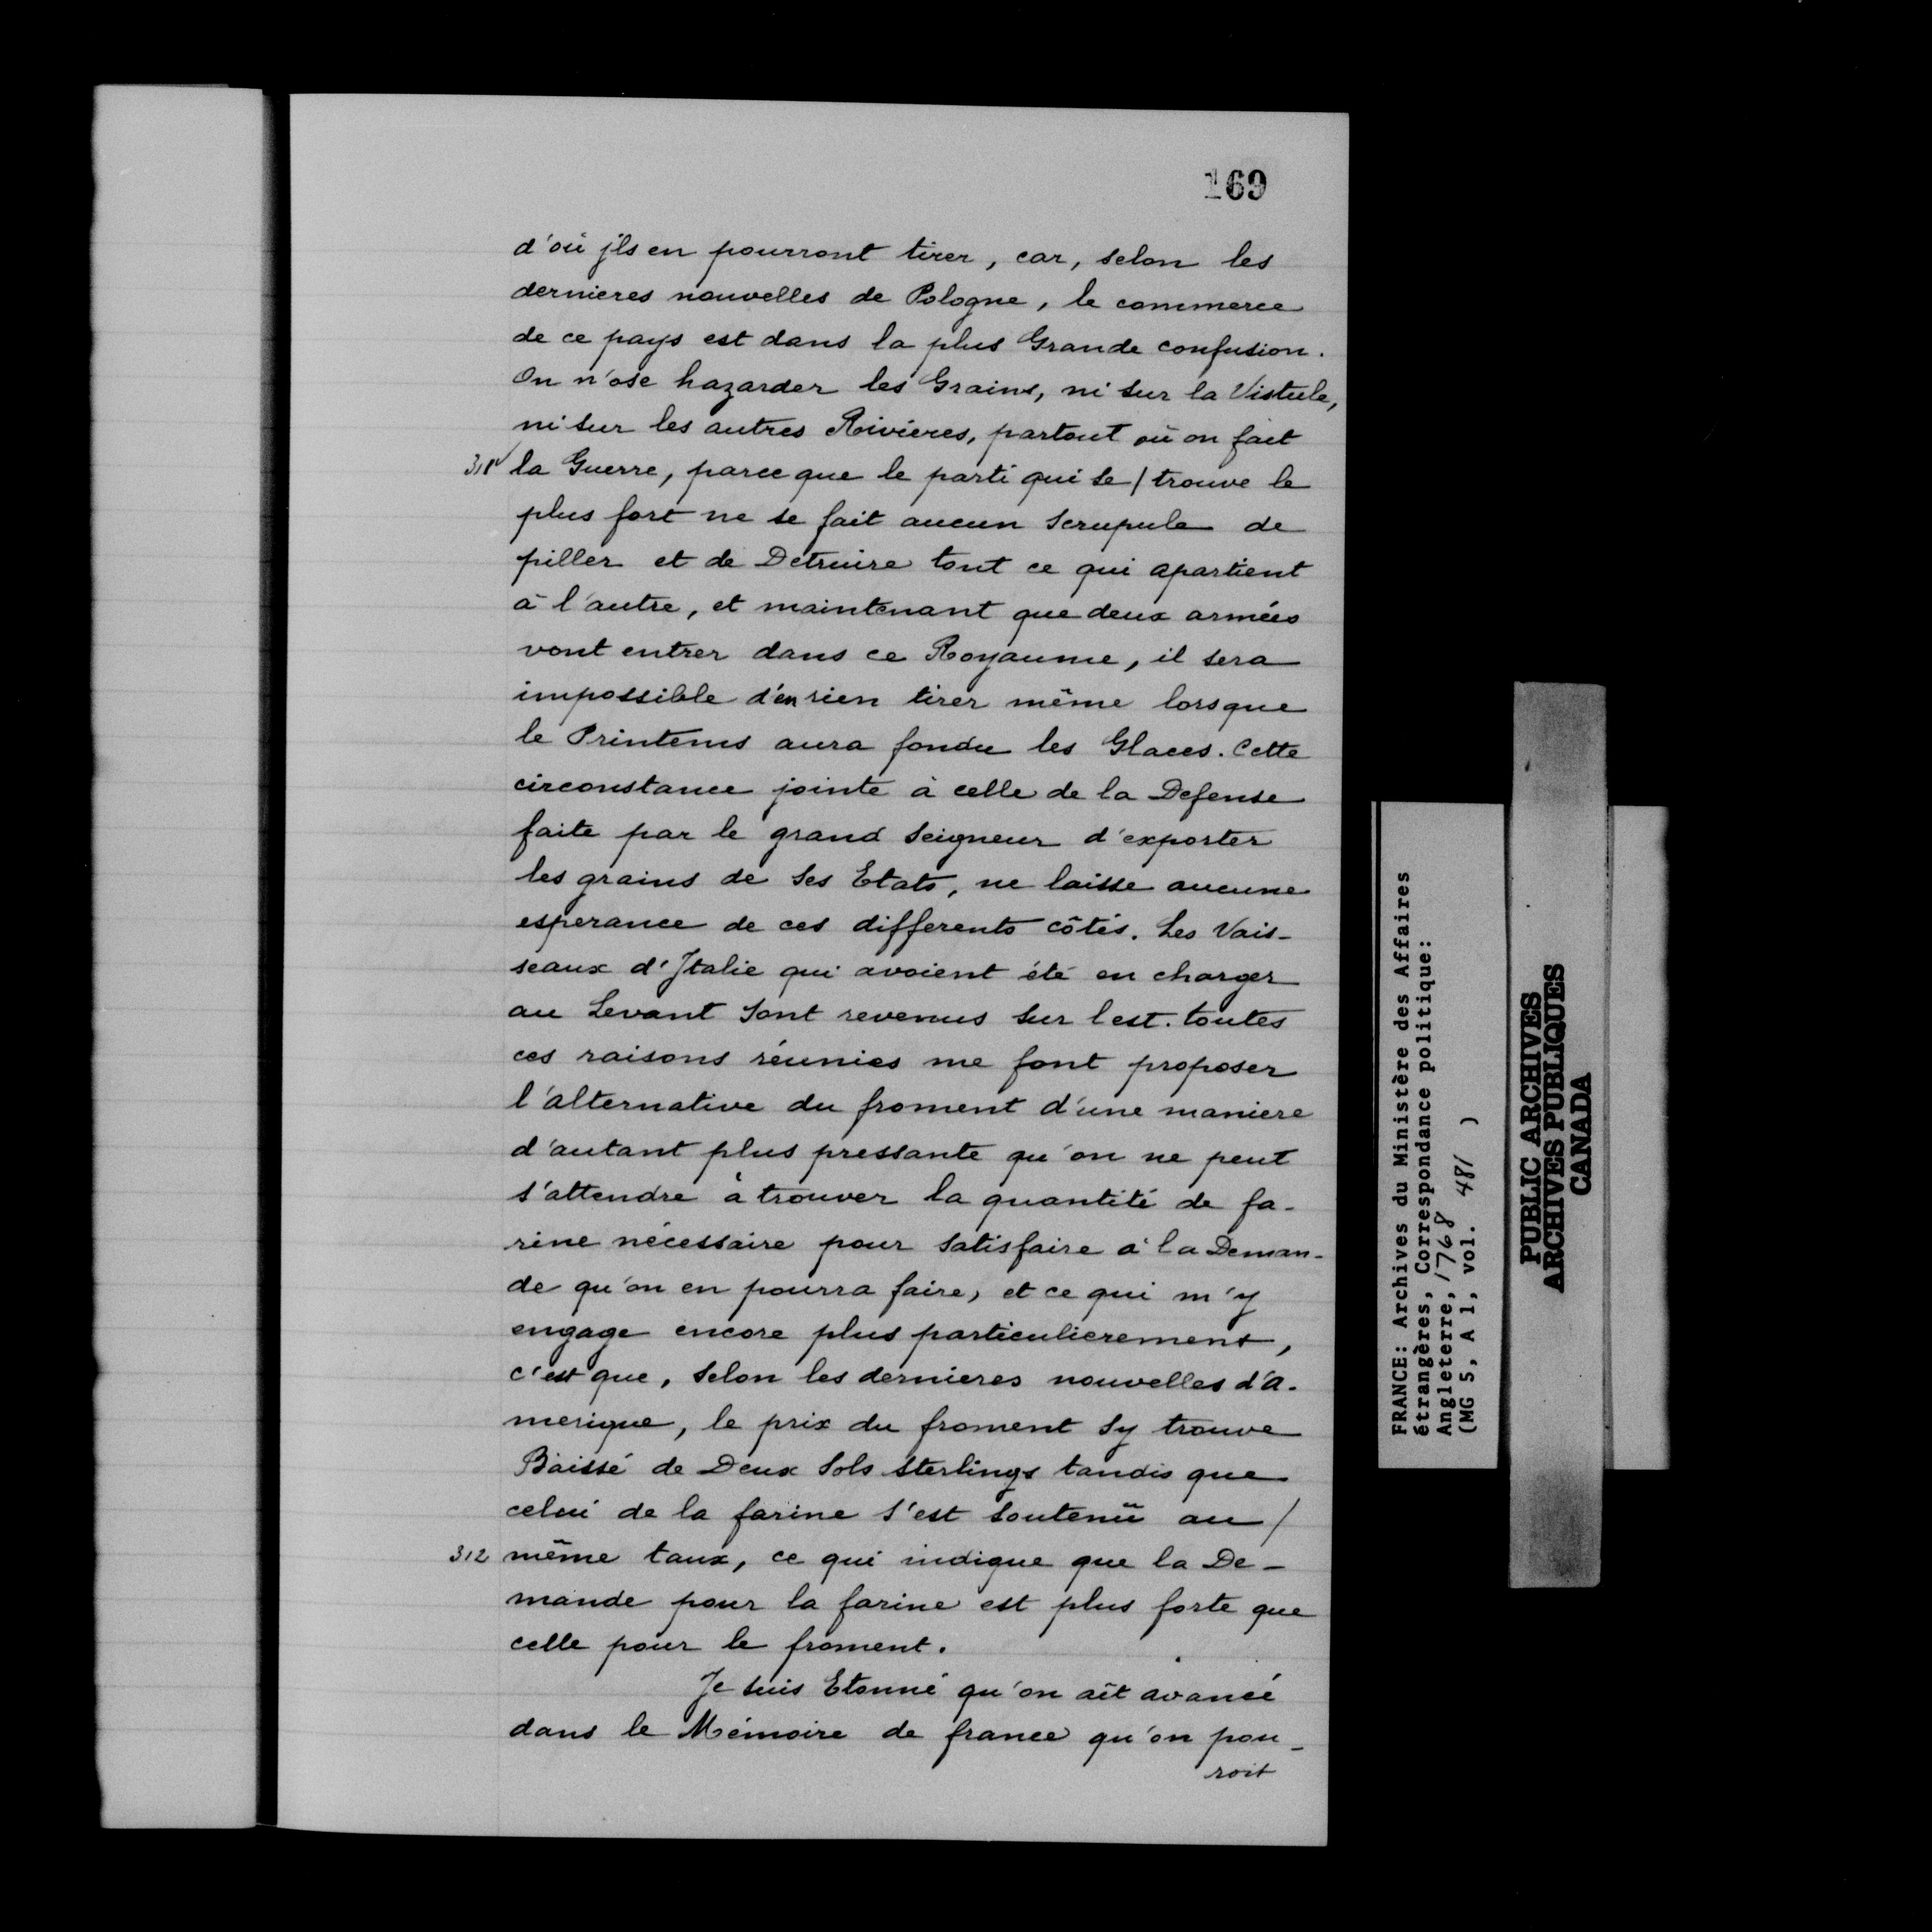 169
d'où jls en pourront tirer, car, selon les
dernieres nouvelles de Pologne, le commerce
de ce pays est dans la plus Grande confusion.
On n'ose hazarder les Grains, ni sur la Vistule,
ni sur les autres Rivieres, partout où on fait
la Guerre, parce que le parti qui se / trouve le
plus fort ne se fait aucun Scrupule de
piller et de Detruire tout ce qui apartient
à l'autre, et maintenant que deux armées
vont entrer dans ce Royaume, il sera
impossible d'en rien tirer même lorsque
le Printems aura fondu les Glaces. Cette
circonstance jointe à celle de la Defense
faite par le grand Seigneur d'exporter
les grains de ses Etats, ne laisse aucune
esperance de ces differents côtés. Les Vais-
seaux d'Jtalie qui avoient été en charger
au Levant sont revenus sur lest. toutes
ces raisons réunies me font proposer
l'alternative du froment d'une maniere
d'autant plus pressante qu'on ne peut
s'attendre à trouver la quantité de fa-
rine nécessaire pour satisfaire à la Deman-
de qu'on en pourra faire, et ce qui m'y
engage encore plus particulierement,
c'est que, selon les dernieres nouvelles d'A-
merique, le prix du froment sy trouve
Baissé de Deux Sols sterlings tandis que
celui de la farine s'est soutenü au /
312 même taux, ce qui indique que la De-
mande pour la farine est plus forte que
celle pour le froment.
Je suis Etonné qu'on aît avancé
dans le Mémoire de france qu'on pou-
roit
FRANCE: Archives du Ministère des Affaires
étrangères, Correspondance politique:
Angleterre, 1768
(MG 5, A 1, vol. 481 )
PUBLIC ARCHIVES
ARCHIVES PUBLIQUES
CANADA